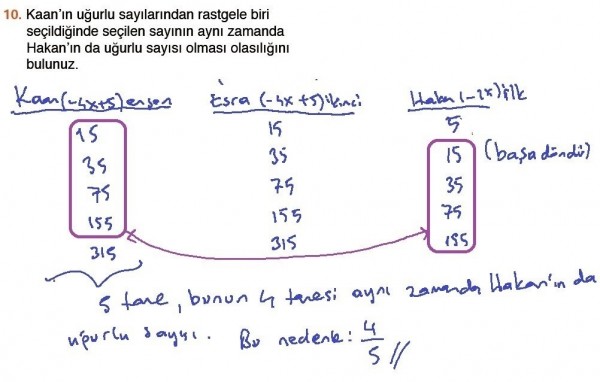 10. Kaan'ın uğurlu sayılarından rastgele biri
seçildiğinde seçilen sayının aynı zamanda
Hakan'ın da uğurlu sayısı olması olasılığını
bulunuz.
Kaan(-4x+5)ensen Esra (-4x+5)ikinci Hakan(-2x)ilk
15 15 5
35 35 15 (başa döndür)
75 75 35
155 155 75
315 315 155
5 tane, bunun 4 tanesi aynı zamanda Hakan'ın da
uğurlu sayısı. Bu nedenle: 4/5 //